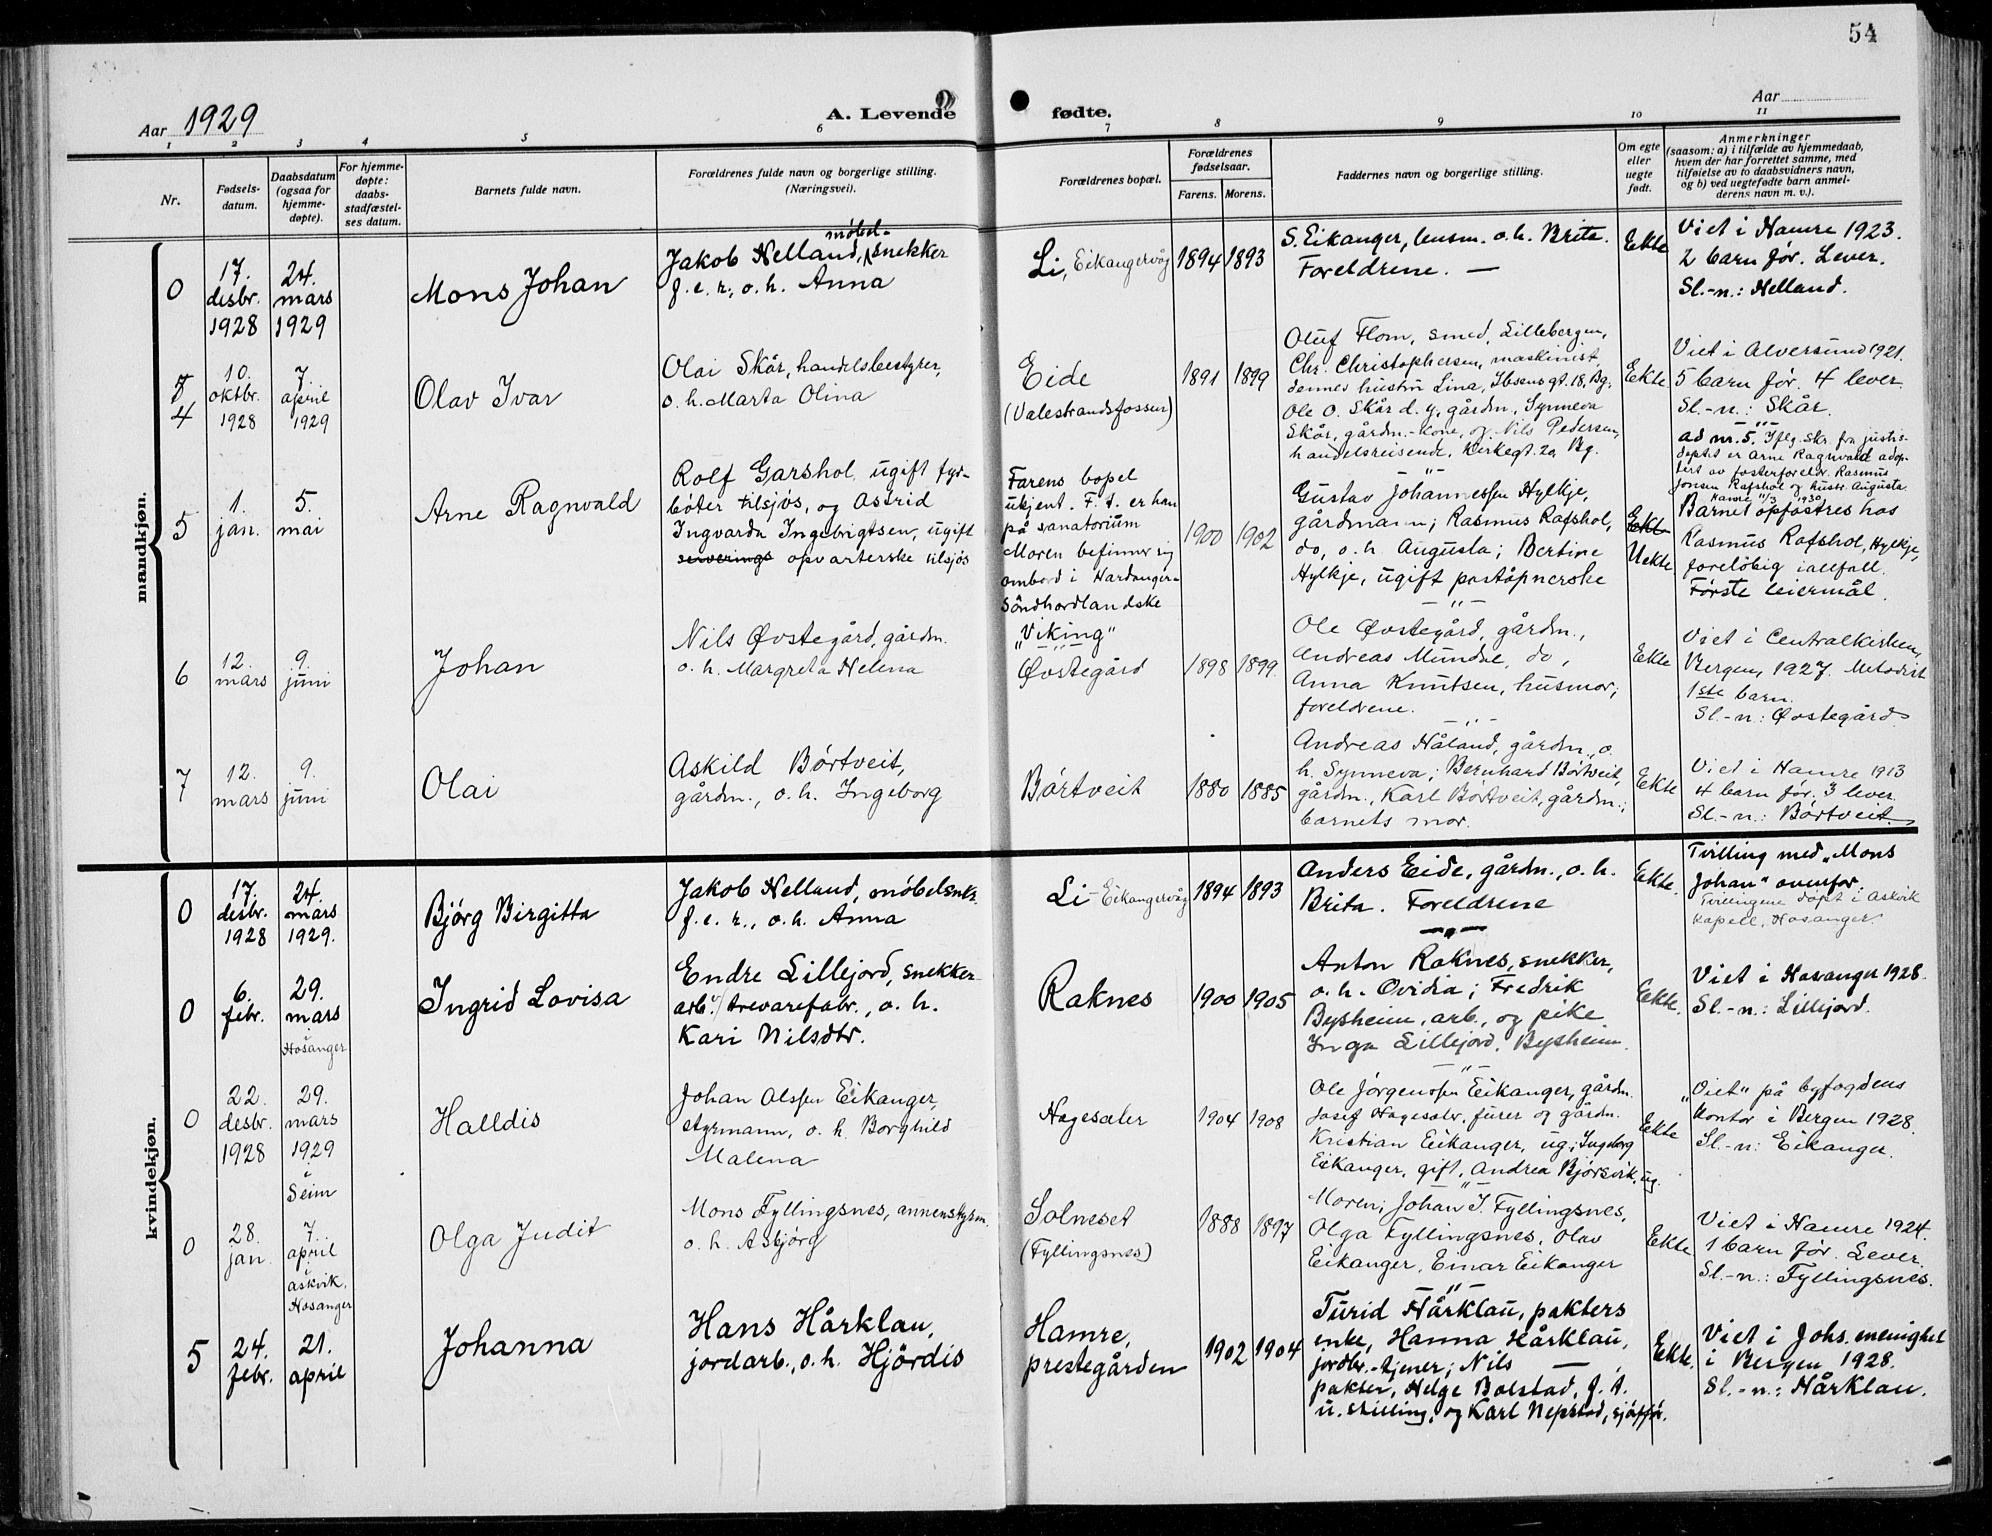 54
Aar 1929
A. Levende
fødte.
Aar
1
2
3
4
5
6
7
8
9
10
11
Nr.
Fødsels-
datum.
Daabsdatum
(ogsaa for
hjemme-
døpte).
For hjemme-
døpte:
daabs-
stadfæstel-
ses datum.
Barnets fulde navn.
Forældrenes fulde navn og borgerlige stilling.
(Næringsvei).
Forældrenes bopæl.
Forældrenes
fødselsaar.
Farens.
Morens.
Faddernes navn og borgerlige stilling.
Om egte
eller
uegte
født.
Anmerkninger
(saasom: a) i tilfælde av hjemmedaab,
hvem der har forrettet samme, med
tilføielse av to daabsvidners navn,
og b) ved uegtefødte barn anmel-
derens navn m. v.).
mandkjøn.
0
17.
desbr.
1928
24.
mars
1929
Mons Johan
møbel-
Jakob Helland, snekker
f.e.r., o.h. Anna
Li, Eikangervåg
1894
1893
S. Eikanger, husm. o.h. Brite.
Foreldrene. —
Ekte
Viet i Hamre 1923.
2 barn før. Lever.
Sl.-n.: Helland.
4
10.
oktbr.
1928
7.
april
1929
Olav Ivar
Olai Skår, handelsbestyrer,
o.h. Marta Olina
Eide
(Valestrandsfossen)
1891
1899
Oluf Flom, smed, Lillebergen,
Chr. Christophersen, maskinist
dennes hustru Lina, Ibsens gt. 18, Bg.
Ole O. Skår d.y. gårdm., Synneva
Skår, gårdm.-kone, og Nils Pedersen,
handelsreisende, Kirkegt. 20 Bg.
Ekte
Viet i Alversund 1921.
5 barn før. 4 lever.
Sl.-n.: Skår.
5
1.
jan.
5.
mai
Arne Ragnvald
Rolf Garshol, ugift fyr-
bøter tilsjøs, og Astrid
Ingvarda Ingebrigtsen, ugift
serverings opvarterske tilsjøs
Farens bopel
ukjent. F. t. er han
på sanatorium
Moren befinner sig
ombord i Hardanger-
Söndhordlandske
"Viking"
1900
1902
Gustav Johannessen Hylkje,
gårdmann; Rasmus Rafshol,
do, o.h. Augusta; Bertine
Hylkje, ugift poståpnerske
Ekte
Uekte
ad nr. 5. Iflg. skr. fra justis-
dept.t er Arne Ragnvald adop-
tert av fosterforeldr. Rasmus
Jonsen Rafshol og hustr. Augusta.
Hamre 11/3 1930
Barnet opfostres hos
Rasmus Rafshol, Hylkje,
foreløbig iallfall.
Første leiermål.
6
12.
mars
9.
juni
Johan
Nils Øvstegård, gårdm.
o.h. Margreta Helena
Øvstegård
1898
1899.
Ole Øvstegård, gårdm.,
Andreas Mundal, do,
Anna Knutsen, husmor;
foreldrene.
Ekte
Viet i Centralkirken,
Bergen, 1927. Metodist
1ste barn.
Sl.-n.: Øvstegård
7
12.
mars
9.
juni
Olai
Askild Børtveit,
gårdm., o.h. Ingeborg
Børtveit
1880
1885
Andreas Håland, gårdm., o.
h. Synneva; Bernhard Børtveit,
gårdm., Karl Børtveit, gårdm.;
barnets mor.
Ekte
Viet i Hamre 1913
4 barn før. 3 lever.
Sl.-n.: Børtveit.
kvindekjøn.
0
17.
desbr.
1928
24.
mars
1929.
Bjørg Birgitta
Jakob Helland, møbelsnk.
f.e.r., o.h. Anna
Li - Eikangervåg
1894
1893
Anders Eide, gårdm., o.h.
Brita. Foreldrene
Ekte.
Tvilling med "Mons
Johan" ovenfor.
Tvillingene døpt i Askvik
kapell, Hosanger
0
6.
febr.
29.
mars
Hosanger
Ingrid Lovisa
Endre Lillejord, snekker-
arb. v/ trevarefabr., o.h.
Kari Nilsdtr.
Raknes
1900
1905
Anton Raknes, snekker,
o.h. Ovidia; Fredrik
Bysheim, arb., og pike
Inga Lillejord, Bysheim.
Ekte.
Viet i Hosanger 1928.
Sl.-n.: Lillejord.
0
22.
desbr.
1928
29.
mars
1929
i
Seim
Halldis
Johan Olsen Eikanger,
styrmann, o.h. Borghild
Malena
Hagesæter
1904
1908
Ole Jørgenssen Eikanger, gårdm.
Josef Hagesæter, furer og gårdm.
Kristian Eikanger, ug; Ingeborg
Eikanger, gift, Andrea Bjørsvik, ug.
Ekte
"Viet" på byfogdens
kontor i Bergen 1928.
Sl.-n: Eikanger.
0
28.
jan.
7.
april
i
Askvik,
Hosanger
Olga Judit
Mons Fyllingsnes, annenstyrm.
o.h. Asbjørg
Solneset
(Fyllingsnes)
1888
1897
Moren; Johan I. Fyllingsnes,
Olga Fyllingsnes, Olav
Eikanger, Einar Eikanger
Ekte
Viet i Hamre 1924.
1 barn før. Lever.
Sl.-n.: Fyllingsnes.
5
24.
febr.
21.
april
Johanna
Hans Hårklau,
jordarb., o.h. Hjördis
Hamre,
prestegården
1902
1904
Turid Hårklau, pakters
enke, Hanna Hårklau,
jordbr.-tjener; Nils — ,
pakter, Helge Bolstad, f. t.
u. stilling, og Karl Nepstad, sjåfför.
Ekte.
Viet i Johs. menighet
i Bergen 1928.
Sl.-n.: Hårklau.